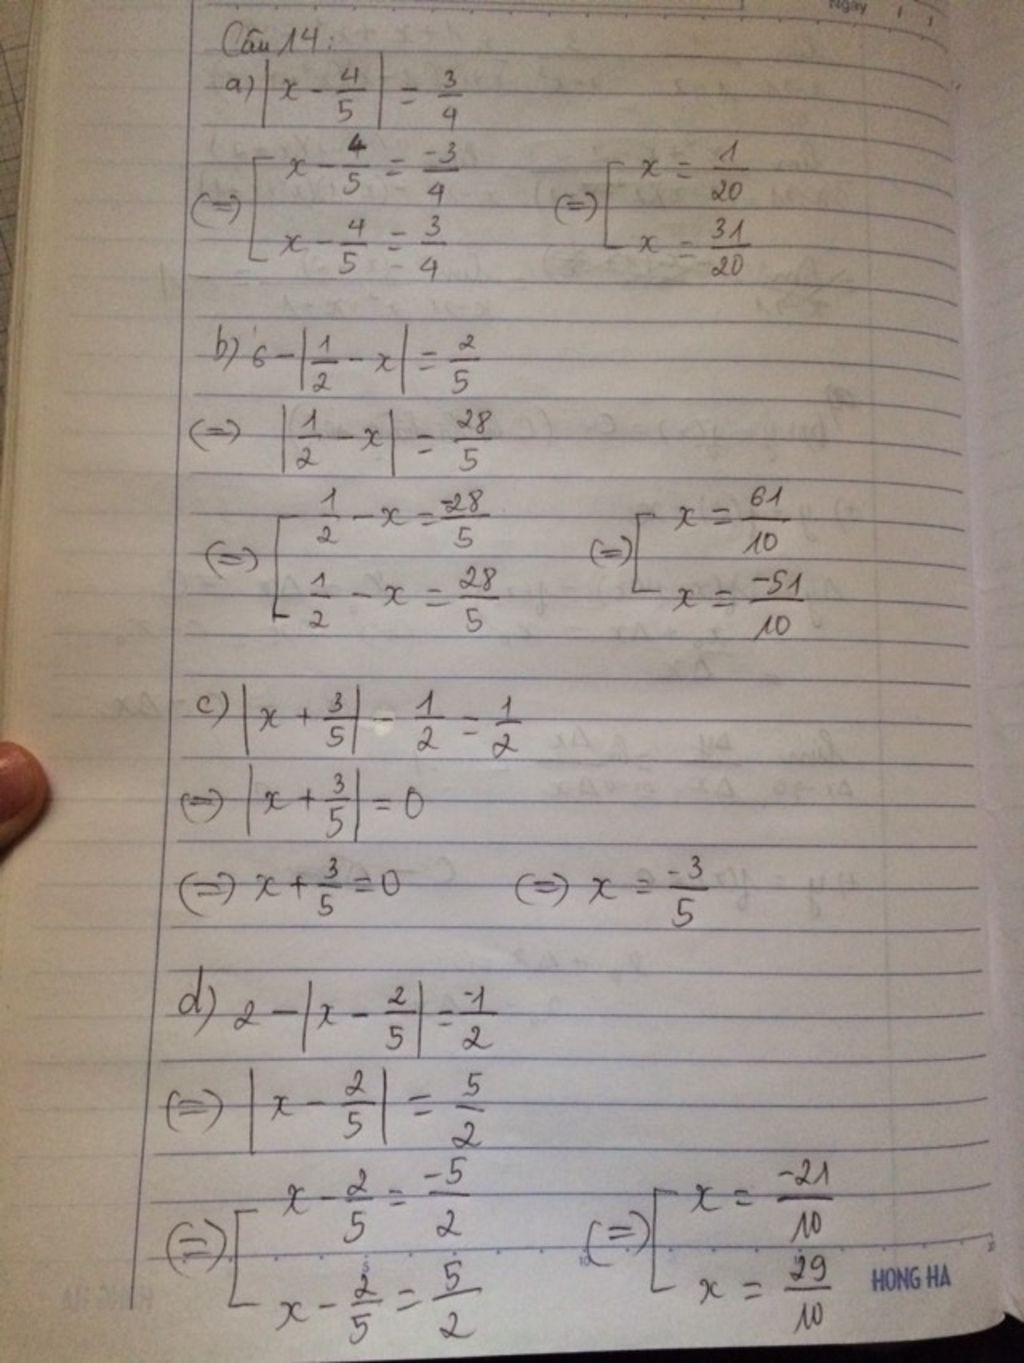 Ngày
Câu 14:
a) |x - 4/5| = 3/4
(=) [ x - 4/5 = -3/4 (=) [ x = 1/20
x - 4/5 = 3/4 x = 31/20
b) 6 - |1/2 - x| = 2/5
(=) |1/2 - x| = 28/5
(=) [ 1/2 - x = -28/5 (=) [ x = 61/10
1/2 - x = 28/5 x = -51/10
c) |x + 3/5| - 1/2 = 1/2
(=) |x + 3/5| = 0
(=) x + 3/5 = 0 (=) x = -3/5
d) 2 - |x - 2/5| = -1/2
(=) |x - 2/5| = 5/2
(=) [ x - 2/5 = -5/2 (=) [ x = -21/10
x - 2/5 = 5/2 x = 29/10
HONG HA